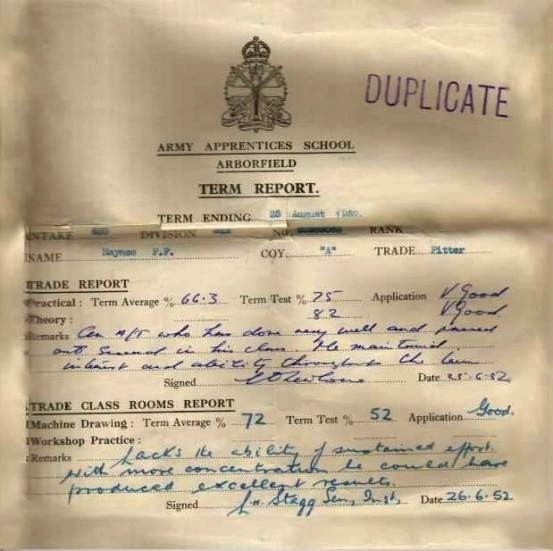 DUPLICATE
ARMY APPRENTICES SCHOOL
ARBORFIELD
TERM REPORT.
TERM ENDING 28 August
INTAKE DIVISION NO. RANK
NAME Haynes P.F. COY. "A" TRADE Fitter
TRADE REPORT
Practical : Term Average % 66.3 Term Test % 75 Application V Good
Theory : 82 V Good
Remarks An A/T who has done very well and passed
out second in his class. He maintained
interest and ability throughout the term
Signed Date 25.6.52
TRADE CLASS ROOMS REPORT
Machine Drawing : Term Average % 72 Term Test % 52 Application Good.
Workshop Practice :
Remarks Lacks the ability of sustained effort.
With more concentration he could have
produced excellent results.
Signed Stagg Sen. Inst. Date 26.6.52.